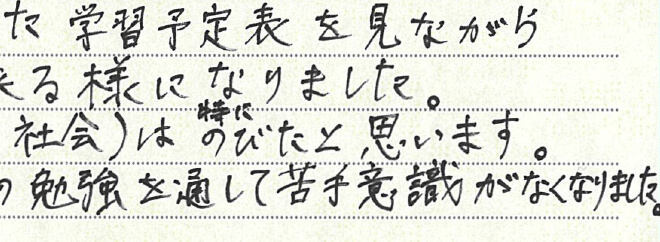 た 学習予定表を見ながら
来る様になりました。
社会)は 特に のびたと思います。
の 勉強を通して苦手意識がなくなりました。